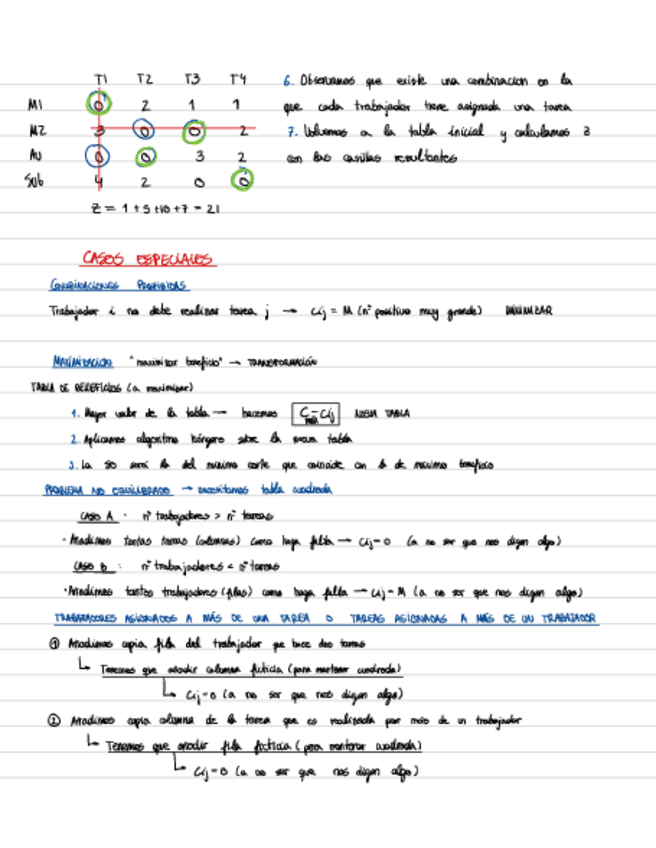 T1 T2 T3 T4
M1 0 2 1 1
M2 3 0 0 2
Au 0 0 3 2
Sub 4 2 0 0
Z = 1 + 5 + 10 + 7 = 21
6. Observamos que existe una combinacion en la
que cada trabajador tiene asignada una tarea
7. Volvemos a la tabla inicial y calculamos z
con las casillas resultantes
CASOS ESPECIALES
COMBINACIONES PROHIBIDAS
Trabajador i no debe realizar tarea j → Cij = M (nº positivo muy grande) MINIMIZAR
MAXIMIZACION "maximizar beneficio" → TRANSFORMACIÓN
TABLA DE BENEFICIOS (a maximizar)
1. Mayor valor de la tabla → hacemos C - Cij NUEVA TABLA
2. Aplicamos algoritmo húngaro sobre la nueva tabla
3. La SO será la del minimo coste que coincide con la de maximo beneficio
PROBLEMA NO EQUILIBRADO → necesitamos tabla cuadrada
CASO A: nº trabajadores > nº tareas
· Añadimos tantas tareas (columnas) como haga falta → Cij = 0 (a no ser que nos digan algo)
CASO B: nº trabajadores < nº tareas
· Añadimos tantos trabajadores (filas) como haga falta → Cij = M (a no ser que nos digan algo)
TRABAJADORES ASIGNADOS A MÁS DE UNA TAREA O TAREAS ASIGNADAS A MÁS DE UN TRABAJADOR
① Añadimos copia fila del trabajador que hace dos tareas
Tenemos que añadir columna ficticia (para mantener cuadrada)
Cij = 0 (a no ser que nos digan algo)
② Añadimos copia columna de la tarea que es realizada por más de un trabajador
Tenemos que añadir fila ficticia (para mantener cuadrada)
Cij = 0 (a no ser que nos digan algo)